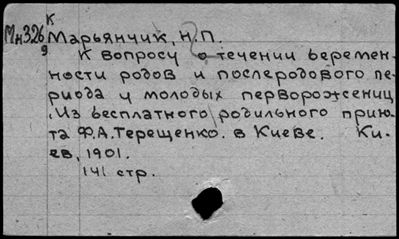 К
Мн326 Марьянчик, Н.П.
9
К вопросу о течении беремен-
ности родов и послеродового пе-
риода у молодых первороженниц
.Из бесплатного родильного прию-
та Ф.А.Терещенко. в Киеве. Ки-
ев, 1901.
141 стр.